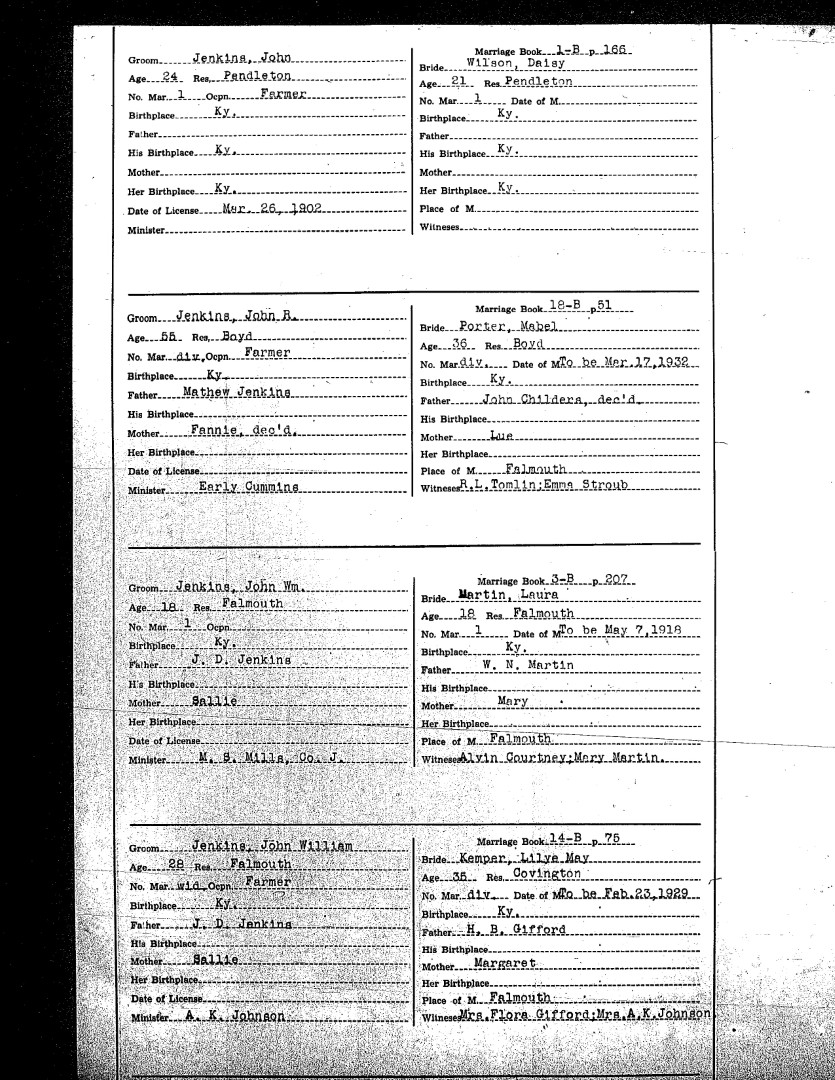 Groom Jenkins, John
Age 24 Res. Pendleton
No. Mar. 1 Ocpn. Farmer
Birthplace Ky.
Father
His Birthplace Ky.
Mother
Her Birthplace Ky.
Date of License Mar. 26, 1902
Minister
Marriage Book 1-B p. 166
Bride Wilson, Daisy
Age 21 Res. Pendleton
No. Mar. 1 Date of M.
Birthplace Ky.
Father
His Birthplace Ky.
Mother
Her Birthplace Ky.
Place of M.
Witnesses
Groom Jenkins, John R.
Age 55 Res. Boyd
No. Mar. div. Ocpn. Farmer
Birthplace Ky.
Father Mathew Jenkins
His Birthplace
Mother Fannie, dec'd.
Her Birthplace
Date of License
Minister Early Cummins
Marriage Book 18-B p. 51
Bride Porter, Mabel
Age 36 Res. Boyd
No. Mar. div. Date of M. To be Mar.17,1932
Birthplace Ky.
Father John Childers, dec'd.
His Birthplace
Mother Lue
Her Birthplace
Place of M. Falmouth
Witnesses R.L.Tomlin;Emma Stroub
Groom Jenkins, John Wm.
Age 18 Res. Falmouth
No. Mar. 1 Ocpn.
Birthplace Ky.
Father J. D. Jenkins
His Birthplace
Mother Sallie
Her Birthplace
Date of License
Minister M. S. Mills, Co. J.
Marriage Book 3-B p. 207
Bride Martin, Laura
Age 18 Res. Falmouth
No. Mar. 1 Date of M. To be May 7,1918
Birthplace Ky.
Father W. N. Martin
His Birthplace
Mother Mary
Her Birthplace
Place of M. Falmouth
Witnesses Alvin Courtney;Mary Martin.
Groom Jenkins, John William
Age 28 Res. Falmouth
No. Mar. wid. Ocpn. Farmer
Birthplace Ky.
Father J. D. Jenkins
His Birthplace
Mother Sallie
Her Birthplace
Date of License
Minister A. K. Johnson
Marriage Book 14-B p. 75
Bride Kemper, Lilye May
Age 35 Res. Covington
No. Mar. div. Date of M. To be Feb.23,1929
Birthplace Ky.
Father H. B. Gifford
His Birthplace
Mother Margaret
Her Birthplace
Place of M. Falmouth
Witnesses Mrs.Flora Gifford;Mrs.A.K.Johnson